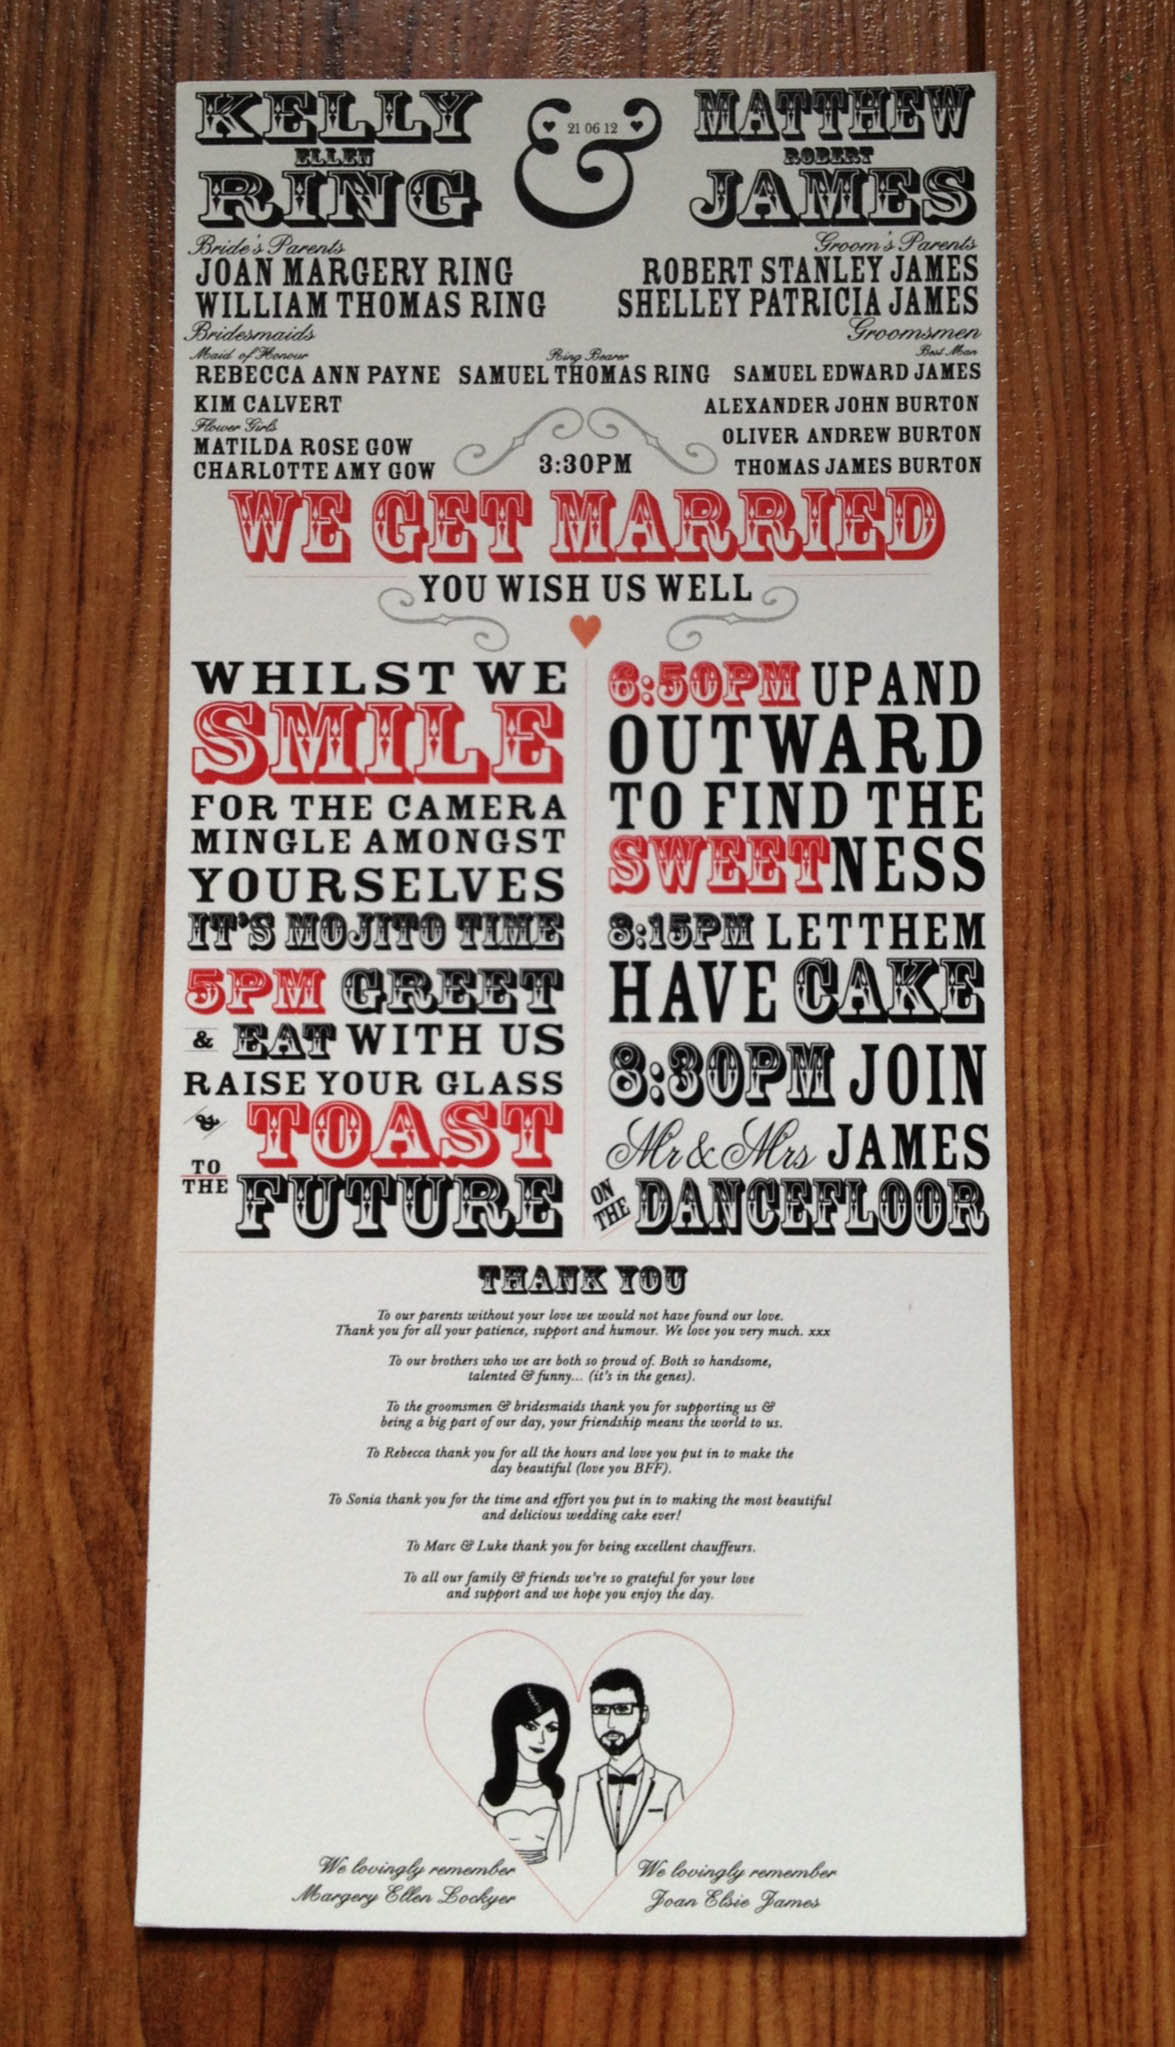 KELLY
ELLEN
RING
& 21 06 12
MATTHEW
ROBERT
JAMES
Bride's Parents
JOAN MARGERY RING
WILLIAM THOMAS RING
Groom's Parents
ROBERT STANLEY JAMES
SHELLEY PATRICIA JAMES
Bridesmaids
Maid of Honour
REBECCA ANN PAYNE
KIM CALVERT
Flower Girls
MATILDA ROSE GOW
CHARLOTTE AMY GOW
Ring Bearer
SAMUEL THOMAS RING
Groomsmen
Best Man
SAMUEL EDWARD JAMES
ALEXANDER JOHN BURTON
OLIVER ANDREW BURTON
THOMAS JAMES BURTON
3:30PM
WE GET MARRIED
YOU WISH US WELL
WHILST WE
SMILE
FOR THE CAMERA
MINGLE AMONGST
YOURSELVES
IT'S MOJITO TIME
5PM GREET
& EAT WITH US
RAISE YOUR GLASS
& TOAST
TO THE FUTURE
6:50PM UP AND
OUTWARD
TO FIND THE
SWEETNESS
8:15PM LET THEM
HAVE CAKE
8:30PM JOIN
Mr & Mrs JAMES
ON THE DANCEFLOOR
THANK YOU
To our parents without your love we would not have found our love.
Thank you for all your patience, support and humour. We love you very much. xxx
To our brothers who we are both so proud of. Both so handsome,
talented & funny... (it's in the genes).
To the groomsmen & bridesmaids thank you for supporting us &
being a big part of our day, your friendship means the world to us.
To Rebecca thank you for all the hours and love you put in to make the
day beautiful (love you BFF).
To Sonia thank you for the time and effort you put in to making the most beautiful
and delicious wedding cake ever!
To Marc & Luke thank you for being excellent chauffeurs.
To all our family & friends we're so grateful for your love
and support and we hope you enjoy the day.
We lovingly remember
Margery Ellen Lockyer
We lovingly remember
Joan Elsie James